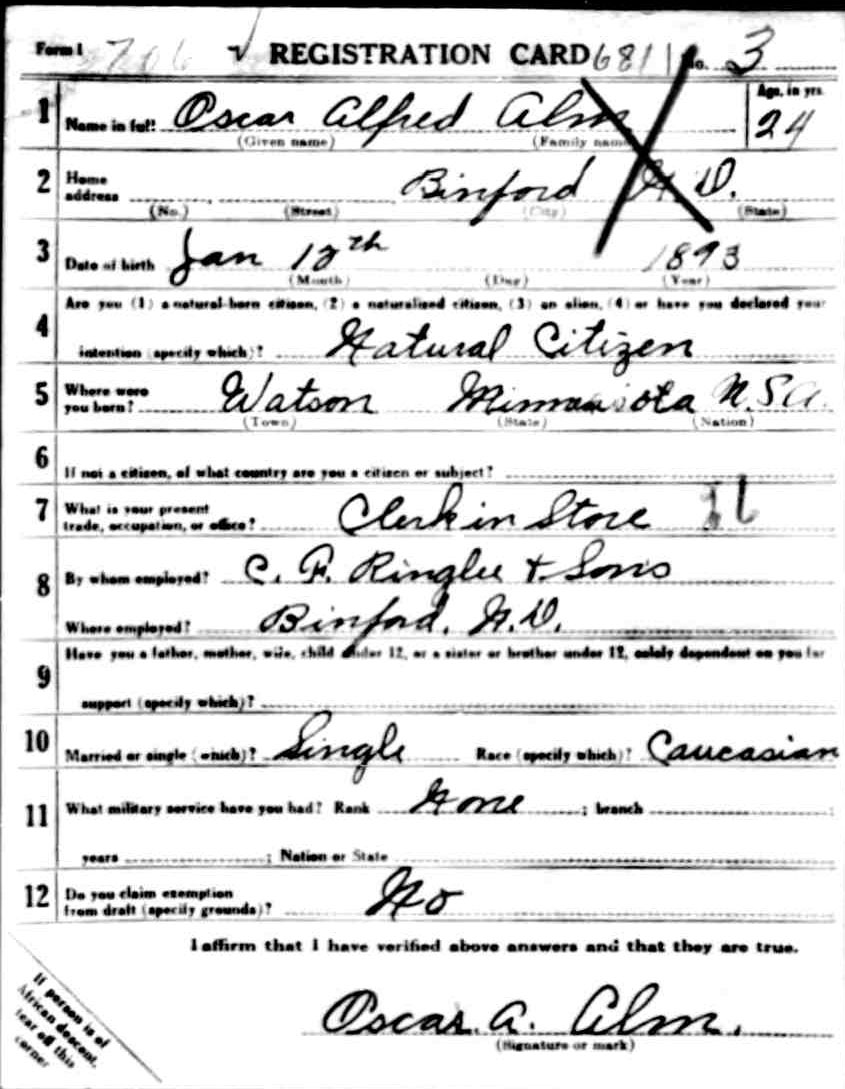 Form 1 706 √ REGISTRATION CARD 6811 No. 3
1 Name in full Oscar Alfred Alm Age, in yrs. 24
(Given name) (Family name)
2 Home address Binford N.D.
(No.) (Street) (City) (State)
3 Date of birth Jan 12th 1893
(Month) (Day) (Year)
4 Are you (1) a natural-born citizen, (2) a naturalized citizen, (3) an alien, (4) or have you declared your
intention (specify which)? Natural Citizen
5 Where were you born? Watson Minnesota U.S.A.
(Town) (State) (Nation)
6 If not a citizen, of what country are you a citizen or subject?
7 What is your present trade, occupation, or office? Clerk in Store
8 By whom employed? C. F. Ringlee & Sons
Where employed? Binford, N.D.
9 Have you a father, mother, wife, child under 12, or a sister or brother under 12, solely dependent on you for
support (specify which)?
10 Married or single (which)? Single Race (specify which)? Caucasian
11 What military service have you had? Rank None ; branch ;
years ; Nation or State
12 Do you claim exemption from draft (specify grounds)? No
I affirm that I have verified above answers and that they are true.
Oscar A. Alm.
(Signature or mark)
If person is of
African descent,
tear off this
corner